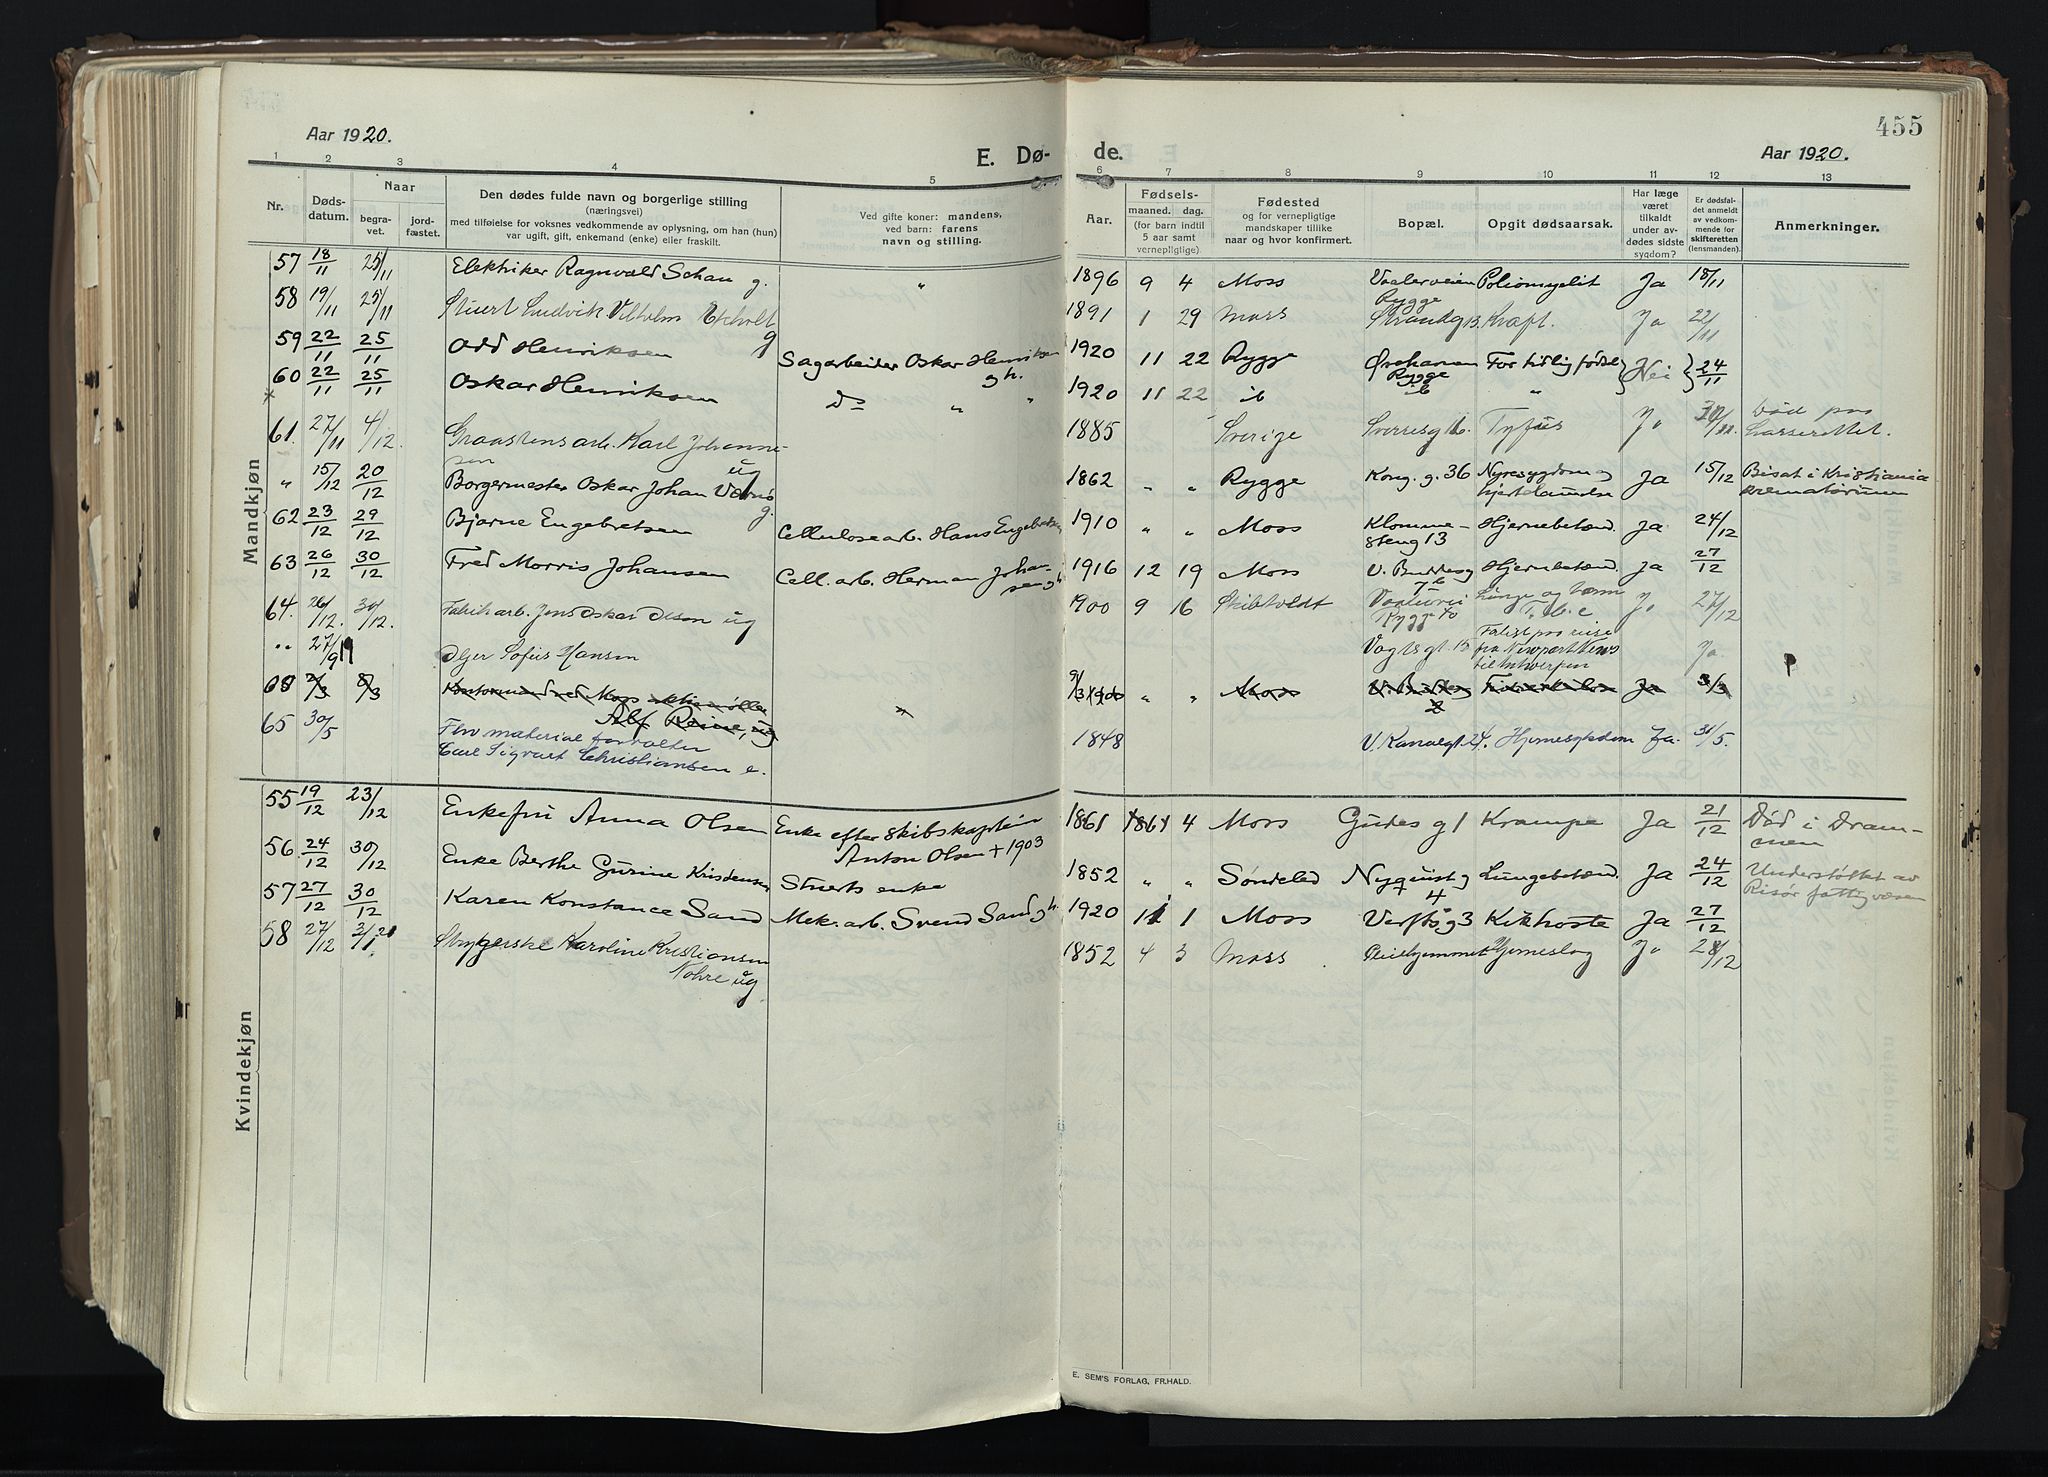 455
Aar 1920.
E. Dø- de.
Aar 1920.
1 2 3 4 5 6 7 8 9 10 11 12 13
Nr.
Døds-
datum.
Naar
begra-
vet.
jord-
fæstet.
Den dødes fulde navn og borgerlige stilling
(næringsvei)
med tilføielse for voksnes vedkommende av oplysning, om han (hun)
var ugift, gift, enkemand (enke) eller fraskilt.
Ved gifte koner: mandens,
ved barn: farens
navn og stilling.
Aar.
Fødsels-
maaned. dag.
(for barn indtil
5 aar samt
vernepligtige).
Fødested
og for vernepligtige
mandskaper tillike
naar og hvor konfirmert.
Bopæl.
Opgit dødsaarsak.
Har læge
været
tilkaldt
under av-
dødes sidste
sygdom?
Er dødsfal-
det anmeldt
av vedkom-
mende før
skifteretten
(lensmanden).
Anmerkninger.
Mandkjøn
57 18/11 25/11 Elektriker Ragnvald Schau g. " 1896 9 4 Moss Vaalerveien Poliomyelit Ja 18/11
Rygge
58 19/11 25/11 Stuert Ludvik Vilhelm 1891 1 29 Moss Strandg 13. Kræft. Ja 22/11
g
59 22/11 25/11 Odd Henriksen Sagarbeider Oskar Henriksen 1920 11 22 Rygge For tidlig født Nei 24/11
gh. Rygge
60 22/11 25/11 Oskar Henriksen Do " " 1920 11 22 ib ib "
61. 27/11 4/12. Graastensarb. Karl Johanne- 1885 Sverige Sverresg 16. Tyfus Ja Død paa
sen ug Lasserettet.
" 15/12 20/12 Borgermester Oskar Johan Værns 1862 " " Rygge Kong. g. 36 Nyresygdom og Ja 15/12 Bisat i Kristiania
g. hjertelammelse krematorium
62 23/12 29/12 Bjarne Engebretsen Cellulosearb. Hans Engebretsen 1910 " " Moss Klomme- Hjernebetænd. Ja 24/12
steng 13
63 26/12 30/12 Fred Morris Johansen Cell. arb. Herman Johan- 1916 12 19 Moss V. Buddesg Hjernebetænd. Ja 27/12
sen gh 7b
64. 26/12. 30/12. Fabrikarb. Jens Oskar Olsen ug 1900 9 16 Skibtvedt Vaalervei Lunge og Ja 27/12
Rygge T. b. c
" 27/9 19 Sofus Hansen Vogtsgt. 15 Forlist paa reise Ja.
fra Newport News
til Antwerpen
68 2/3 8/3 Kontormand ved Moss aktiemølle " 9/3 1900 " " Moss Ja 3/3
Alf Reine, ug 2
65 30/5 Flv materialforvalter 1848 V. Kanalgt. 24. Hjernesykdom Ja. 31/5.
Carl Sigvart Christiansen e.
Kvindekjøn
55 19/12 23/12 Enkefru Anna Olsen Enke efter skibskaptein 1861 1861 4 Moss Gudes g 1 Krampe Ja 21/12 Død i Dram-
Anton Olsen + 1903 men
56 24/12 30/12 Enke Berthe Gurine Kristensen Stuerts enke 1852 " " Søndeled Nyquist g Lungebetænd. Ja 24/12 Understøttet av
4 Risør fattigvæsen
57 27/12 30/12 Karen Konstance Sand Mek. arb. Svend Sand gh. 1920 11 1 Moss Verfts g 3 Kikhoste Ja 27/12
58 27/12 3/1 21 Strygerske Karoline Kristiansen 1852 4 3 Moss Pleiehjemmet Hjerneslag Ja 28/12
Nohre ug
E. SEM'S FORLAG, FR.HALD.